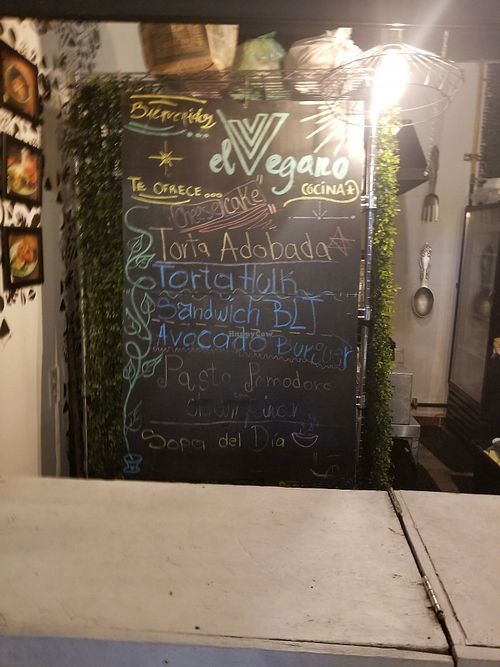 Bienvenidos
...
el Vegano
TE OFRECE...
COCINA
"Cheesecake"
Torta Adobada
Torta Hulk
Sandwich BLT
Avocado Burguer
Pasta Pomodoro
con
Sopa del Día
HappyCow